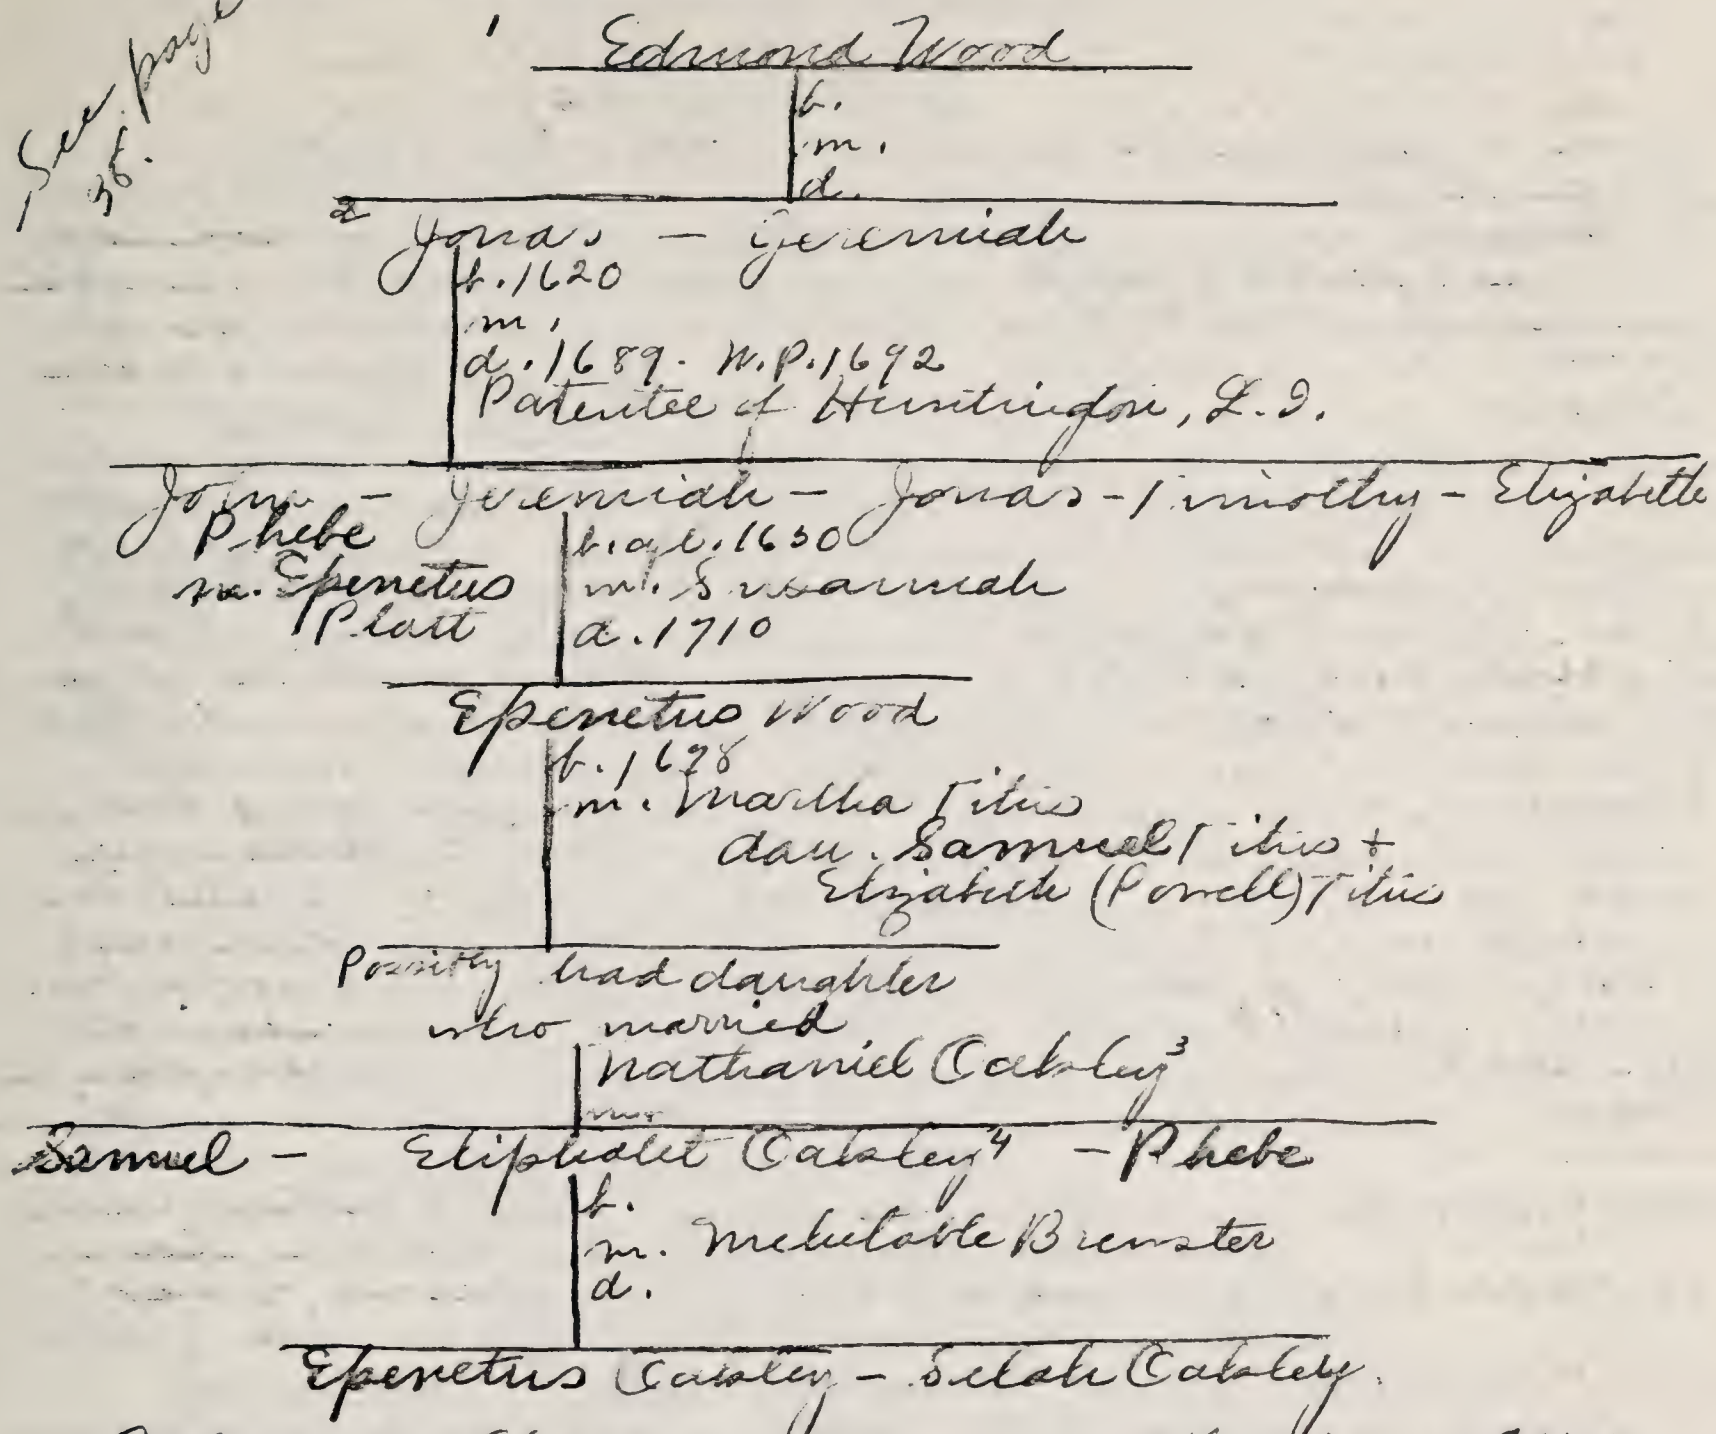 See page
38.
1 Edmond Wood
b.
m.
d.
2 Jonas - Jeremiah
b. 1620
m.
d. 1689. W.P. 1692
Patentee of Huntingdon, L.I.
John - Jeremiah - Jonas - Timothy - Elizabeth
Phebe
m. Epenetus
Platt
b. ab. 1650
m. Susannah
d. 1710
Epenetus Wood
b. 1698
m. Martha Titus
dau. Samuel Titus +
Elizabeth (Powell) Titus
Possibly had daughter
who married
Nathaniel Oakley3
m.
Samuel - Eliphalet Oakley4 - Phebe
b.
m. Mehitable Brewster
d.
Epenetus Oakley - Selah Oakley.